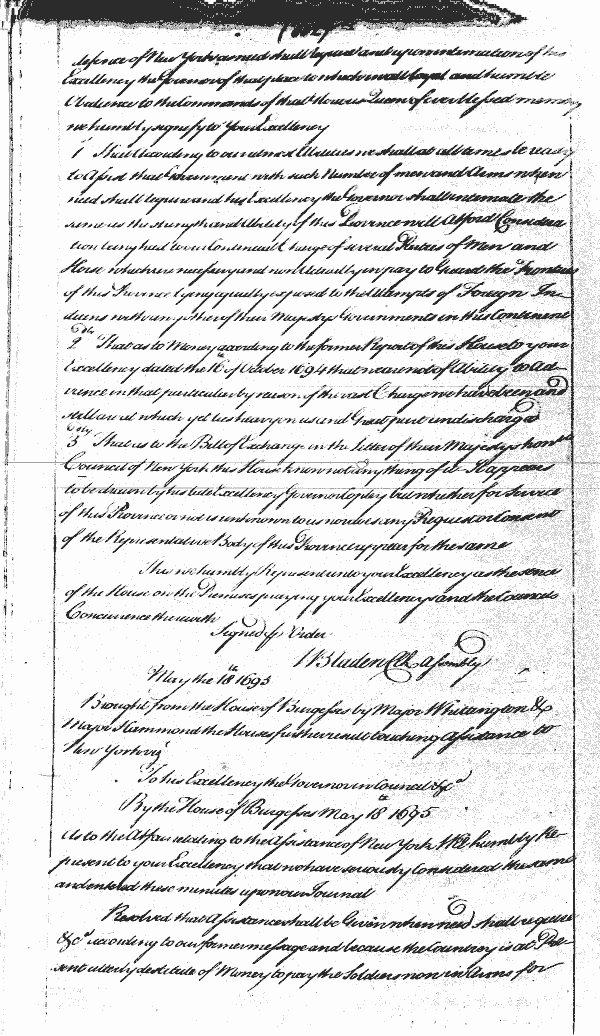 defence of New York as need shall require and upon intimation of his
Excellency the Governor of that place to which in all loyal and humble
Obedience to the Commands of that Honour Queen of ever blessed memory
we humbly signify to your Excellency
1 That according to our utmost Abilities we shall at all times be ready
to Assist that Government with such Number of men and Arms when
need shall require and his Excellency the Governor shall intimate the
same as the strength and Ability of this Province will Afford Considera
tion being had to our Continual Charge of several Parties of Men and
Horse which is necessary and now Actually in pay to Guard the Frontiers
of this Province lying equally exposed to the Attempts of Foreign In
dians with any other of their Majestys Governments in this Continent
2 dly That as to Money according to the former Report of this House to your
Excellency dated the 16th of October 1694 that we are not of Ability to Ad
vance in that particular by reason of the vast Charge we have been and
still are at which yet lies heavy on us and Great part undischarged
3 dly That as to the Bill of Exchange in the Letter of their Majestys honble
Council of New York this House know not any thing of it It appears
to be drawn by his late Excellency Governor Copley but whether for Service
of this Province or not is unknown to us nor does any Request or Consent
of the Representative Body of this Province appear for the same
This we humbly Represent unto your Excellency as the sence
of the House on the Premises praying your Excellencys and the Councils
Concurrence therewith
Signed p Order
W Bladen Clk Assembly
May the 18th 1695
Brought from the House of Burgesses by Major Whittington &
Major Hammond the Houses further result touching Assistance to
New York viz
To his Excellency the Governor in Council &ca
By the House of Burgesses May 18th 1695
As to the Affair relating to the Assistance of New York We humbly Re
present to your Excellency that we have seriously Considered the same
and entered these minutes upon our Journal
Resolved that Assistance shall be Given when need shall require
&ca according to our former message and because the Country is at Pre
sent utterly destitute of Money to pay the Soldiers now in Arms for